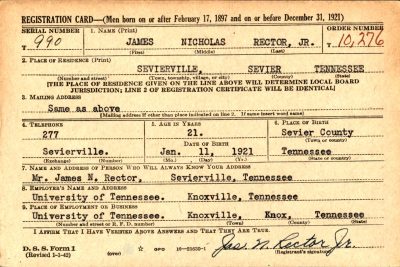 REGISTRATION CARD—(Men born on or after February 17, 1897 and on or before December 31, 1921)
SERIAL NUMBER 1. NAME (Print) ORDER NUMBER
T 990 JAMES NICHOLAS RECTOR, JR. T 10,276
(First) (Middle) (Last)
2. PLACE OF RESIDENCE (Print)
SEVIERVILLE, SEVIER TENNESSEE
(Number and street) (Town, township, village, or city) (County) (State)
[THE PLACE OF RESIDENCE GIVEN ON THE LINE ABOVE WILL DETERMINE LOCAL BOARD
JURISDICTION; LINE 2 OF REGISTRATION CERTIFICATE WILL BE IDENTICAL]
3. MAILING ADDRESS
Same as above
[Mailing address if other than place indicated on line 2. If same insert word same]
4. TELEPHONE 5. AGE IN YEARS 6. PLACE OF BIRTH
277 21. Sevier County
DATE OF BIRTH (Town or county)
Sevierville. Jan. 11, 1921 Tennessee
(Exchange) (Number) (Mo.) (Day) (Yr.) (State or country)
7. NAME AND ADDRESS OF PERSON WHO WILL ALWAYS KNOW YOUR ADDRESS
Mr. James N. Rector, Sevierville, Tennessee
8. EMPLOYER'S NAME AND ADDRESS
University of Tennessee. Knoxville, Tennessee
9. PLACE OF EMPLOYMENT OR BUSINESS
University of Tennessee. Knoxville, Knox, Tennessee
(Number and street or R. F. D. number) (Town) (County) (State)
I AFFIRM THAT I HAVE VERIFIED ABOVE ANSWERS AND THAT THEY ARE TRUE.
D. S. S. Form 1 GPO
(Revised 1-1-42) (over) Jas. N. Rector Jr.
(Registrant's signature)